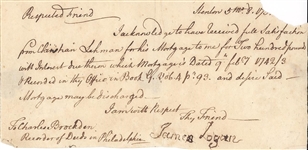 Respected Friend
Stenton 3 mo. 8. 17
I acknowledge to have received full Satisfaction
from Christian Lehman for his Mortgage to me for Two Hundred pounds
with Interest due thereon which Mortgage is Dated 9th 1742/3
& Recorded in thy Office in Book G Vol. 4 p. 93. and desire Said
Mortgage may be discharged
I am with Respect
Thy Friend
To Charles Brockden
Recorder of Deeds in Philadelphia
James Logan